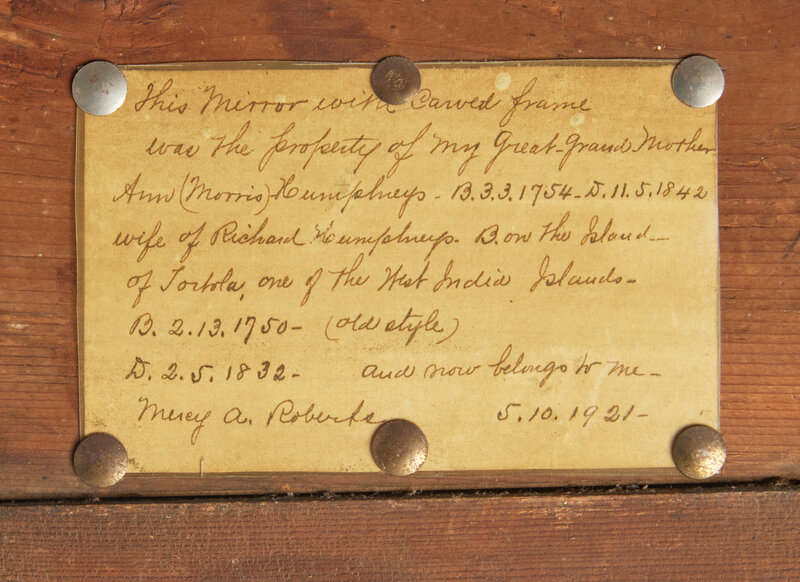 This Mirror with Carved frame
was the property of my Great-Grand-Mother
Ann (Morris) Humphreys - B. 3.3.1754 - D. 11.5.1842
wife of Richard Humphreys - B. on the Island -
of Tortola, one of the West India Islands -
B. 2.13.1750 - (old style)
D. 2.5.1832 - and now belongs to me -
Mercy A. Roberts 5.10.1921 -